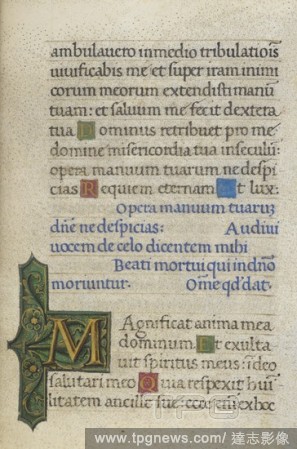 ambulavero in medio tribulatiōis
vivificabis me et super iram inimi
corum meorum extendisti manū
tuam: et salvum me fecit dextera
tua Dominus retribuet pro me
domine misericordia tua in seculū:
opera manuum tuarum ne despi
cias Requiem eternam Et lux:
Opera manuum tuarūʒ
dn̄e ne despicias: Audivi
vocem de celo dicentem mihi
Beati mortui qui in dn̄o
moriuntur. Om̄e qd̄ dat.
Magnificat anima mea
dominum Et exulta
vit spiritus meus: in deo
salutari meo Quia respexit hūi
litatem ancille sue: ecce
www.tpgnews.com/ 達志影像